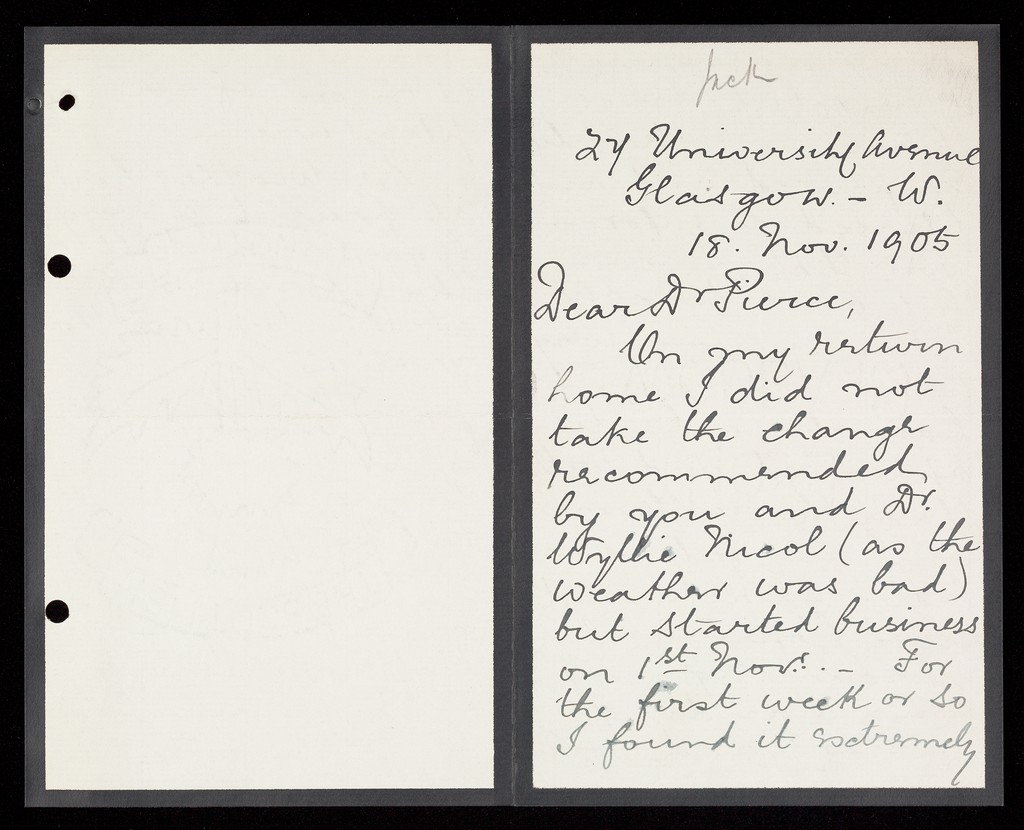 Jack
27 University Avenue
Glasgow. - W.
18. Nov. 1905
Dear Dr Pierce,
On my return
home I did not
take the change
recommended
by you and Dr.
Wyllie Nicol (as the
weather was bad)
but started business
on 1st Novr. - For
the first week or so
I found it extremely